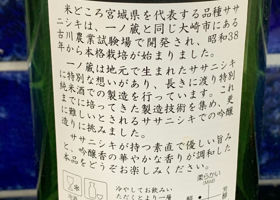 米どころ宮城県を代表する品種ササ
ニシキは、一ノ蔵と同じ大崎市にある
古川農業試験場で開発され、昭和38
年から本格栽培が始まりました。
一ノ蔵は地元で生まれたササニシキ
に特別な想いがあり、長きに渡り特別
純米酒での製造を行っています。これ
までに培ってきた製造技術を集め、更
に難しいとされるササニシキでの吟醸
造りに挑みました。
ササニシキが持つ素直で優しい旨み
と、吟醸香の華やかな香りが調和した
本品をどうぞお楽しみください。
冷やしてお飲みい
ただくとより一層
柔らか
(Mild)
軽